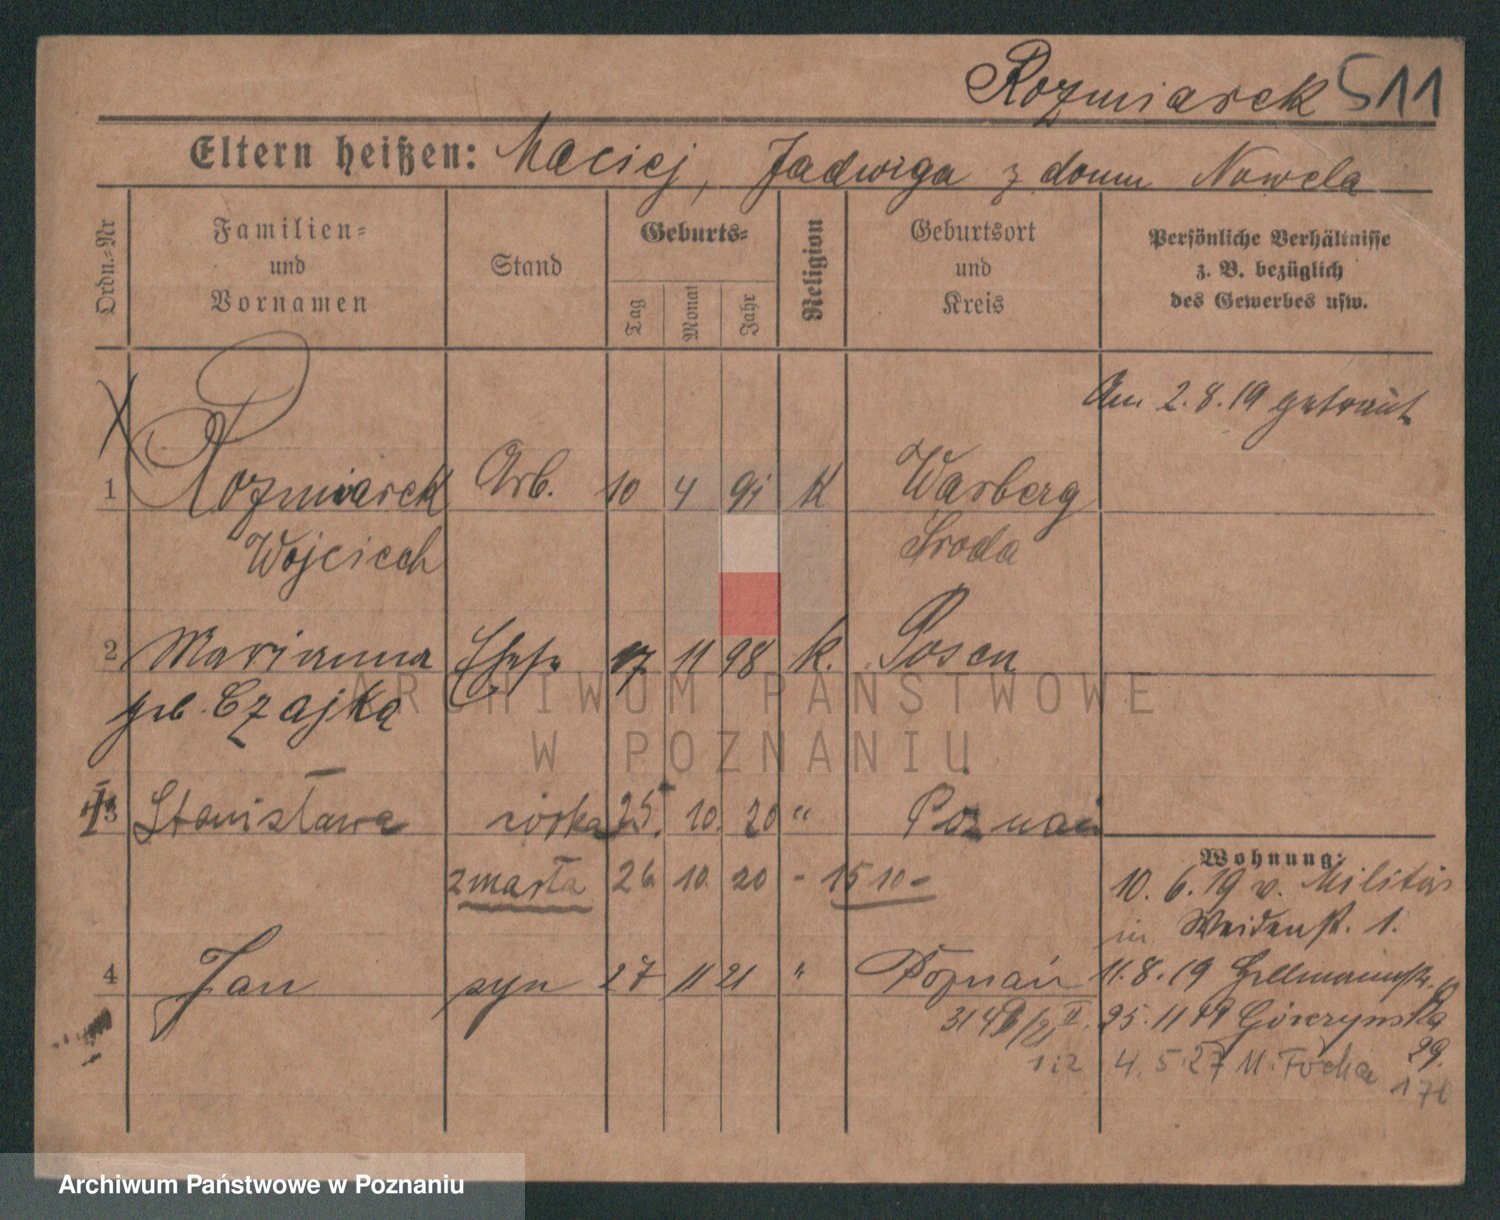 Rozmiarek 511
Eltern heißen: Maciej, Jadwiga z domu Nowela
Ordn.-Nr
Familien-
und
Vornamen
Stand
Geburts-
Tag
Monat
Jahr
Religion
Geburtsort
und
Kreis
Persönliche Verhältnisse
z. B. bezüglich
des Gewerbes usw.
Am 2.8.19 getraut
1 Rozmiarek Arb. 10 4 91 K Warberg
Wojciech Środa
2 Marianna Ehefr 17 11 98 k. Posen
geb. Czajka
3 Stanisława córka 25. 10. 20 " Poznań
Wohnung:
zmarła 26 10. 20 - 1510 -
10. 6. 19 v. Militär
in Weidenstr. 1.
4 Jan syn 27 11 21 " Poznań
11. 8. 19
25. 11 19 Górczyńska
29.
4. 5. 27 M. Focha
ARCHIWUM PAŃSTWOWE
W POZNANIU
Archiwum Państwowe w Poznaniu